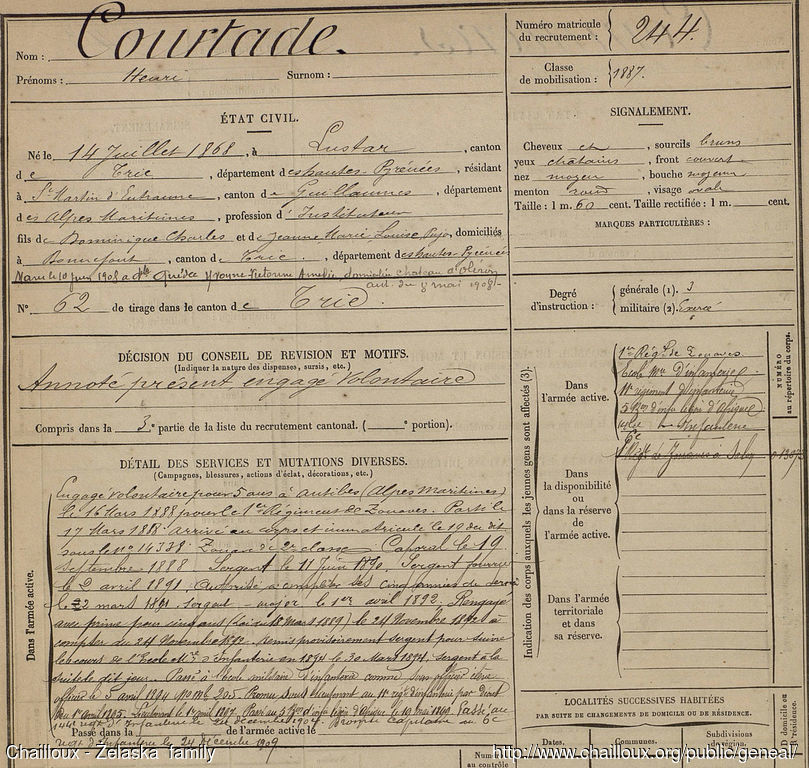 Nom : Courtade.
Prénoms : Henri Surnom :
Numéro matricule du recrutement : 244.
Classe de mobilisation : 1887.
ÉTAT CIVIL.
Né le 14 Juillet 1868, à Lustar, canton
de Trie, département des hautes-Pyrénées, résidant
à St Martin d'Entraune, canton de Guillaumes, département
des Alpes Maritimes, profession d'Instituteur
fils de Dominique Charles et de Jeanne Marie Louise Pujo, domiciliés
à Bonnefont, canton de Trie, département des hautes-Pyrénées
Marié le 10 juin 1908 à Yvonne Victorine Amélie, domiciliée chateau d'Oléron
aut. du 8 mai 1908.
N° 62 de tirage dans le canton de Trie.
SIGNALEMENT.
Cheveux et, sourcils bruns
yeux chatains, front couvert
nez moyen, bouche moyenne
menton rond, visage ovale
Taille : 1 m. 60 cent. Taille rectifiée : 1 m. cent.
MARQUES PARTICULIÈRES :
Degré d'instruction : générale (1). 3
militaire (2). Exercé
DÉCISION DU CONSEIL DE REVISION ET MOTIFS.
(Indiquer la nature des dispenses, sursis, etc.)
Annoté présent engagé Volontaire
Compris dans la 3e partie de la liste du recrutement cantonal. ( e portion).
DÉTAIL DES SERVICES ET MUTATIONS DIVERSES.
(Campagnes, blessures, actions d'éclat, décorations, etc.)
Dans l'armée active.
Engagé Volontaire pour 5 ans à Antibes (Alpes Maritimes)
le 16 Mars 1888 pour le 1er Régiment de Zouaves. Parti le
17 Mars 1888 arrivé au corps et immatriculé le 19 du dit
sous le no 14338 Zouave de 2e classe Caporal le 19
Septembre 1888 Sergent le 11 Juin 1890, Sergent fourrier
le 2 avril 1891, Autorisé à compléter ses cinq années de service
le 22 mars 1891 Sergent-major le 1er avril 1892. Rengagé
avec prime pour cinq ans (Loi du 18 Mars 1889) le 24 Novembre 1892 à
compter du 24 Novembre 1892. Remis provisoirement Sergent pour suivre
les cours de l'Ecole Mre d'Infanterie en 1894 le 30 Mars 1894, Sergent à la
suite le dit jour. Passé à l'école militaire d'infanterie comme sous officier élève
officier le 5 avril 1894 No Mle 205. Promu Sous Lieutenant au 11e régt d'infanterie par décret
du 1er avril 1895. Lieutenant le 1er avril 1897. Passé au 5e Bon d'infie légère d'Afrique le 19 mai 1898. Passé au
144e régt d'Infanterie le 24 décembre 1904. Promu Capitaine au 6e
Passé dans la de l'armée active le
régt d'Infanterie le 24 Décembre 1909
Indication des corps auxquels les jeunes gens sont affectés (3).
Dans l'armée active.
1er Régt de Zouaves.
Ecole Mre d'infanterie
11e régiment d'Infanterie
5 Bon d'infie légère d'Afrique
144e d'Infanterie
6e
Dans la disponibilité ou dans la réserve de l'armée active.
Dans l'armée territoriale et dans sa réserve.
NUMÉRO au répertoire du corps.
LOCALITÉS SUCCESSIVES HABITÉES
PAR SUITE DE CHANGEMENTS DE DOMICILE OU DE RÉSIDENCE.
Dates. Communes. Subdivisions de région. D domicile ou R résidence.
Numéro au contrôle
Chailloux - Zelaska family
http://www.chailloux.org/public/geneal/